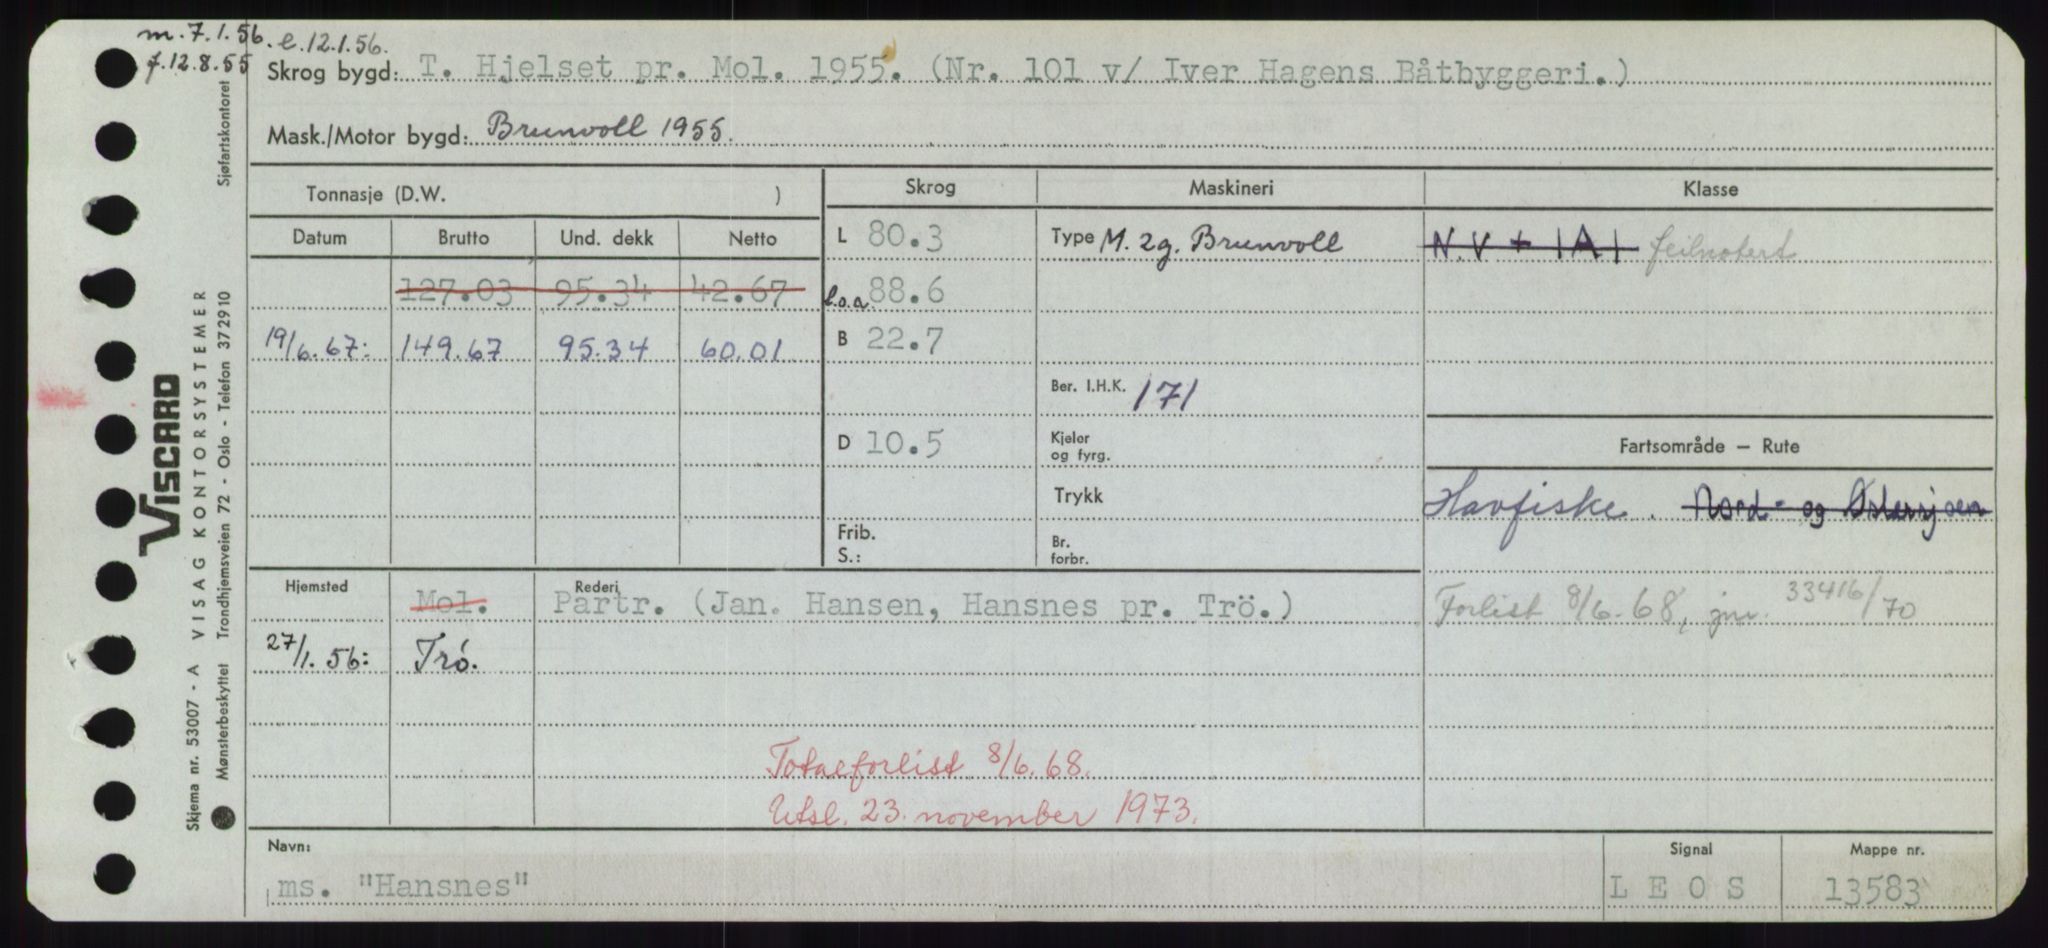 m. 7.1.56. e. 12.1.56.
f. 12.8.55
Skrog bygd: T. Hjelset pr. Mol. 1955. (Nr. 101 v/ Iver Hagens Båtbyggeri.)
Mask./Motor bygd: Brunvoll 1955.
Tonnasje (D.W. )
Skrog Maskineri Klasse
Datum Brutto Und. dekk Netto
L 80.3 Type M. 2g. Brunvoll N.V + 1A1 feilnotert
127.03 95.34 42.67 l.o.a. 88.6
19/6.67: 149.67 95.34 60.01 B 22.7
Ber. I.H.K. 171
D 10.5 Kjeler og fyrg. Fartsområde — Rute
Trykk Havfiske. Nord- og Østersjøen
Frib. S.: Br. forbr.
Hjemsted Rederi
Mol. Partr. (Jan. Hansen, Hansnes pr. Trö.) Forlist 8/6.68, jnr. 33416/70
27/1.56: Trö.
Totalforlist 8/6.68.
Utsl. 23. november 1973.
Navn: Signal Mappe nr.
ms. "Hansnes" LEOS 13583
VISCARD
Skjema nr. 53007 - A VISAG KONTORSYSTEMER
Mønsterbeskyttet Trondhjemsveien 72 - Oslo - Telefon 372910 Sjøfartskontoret